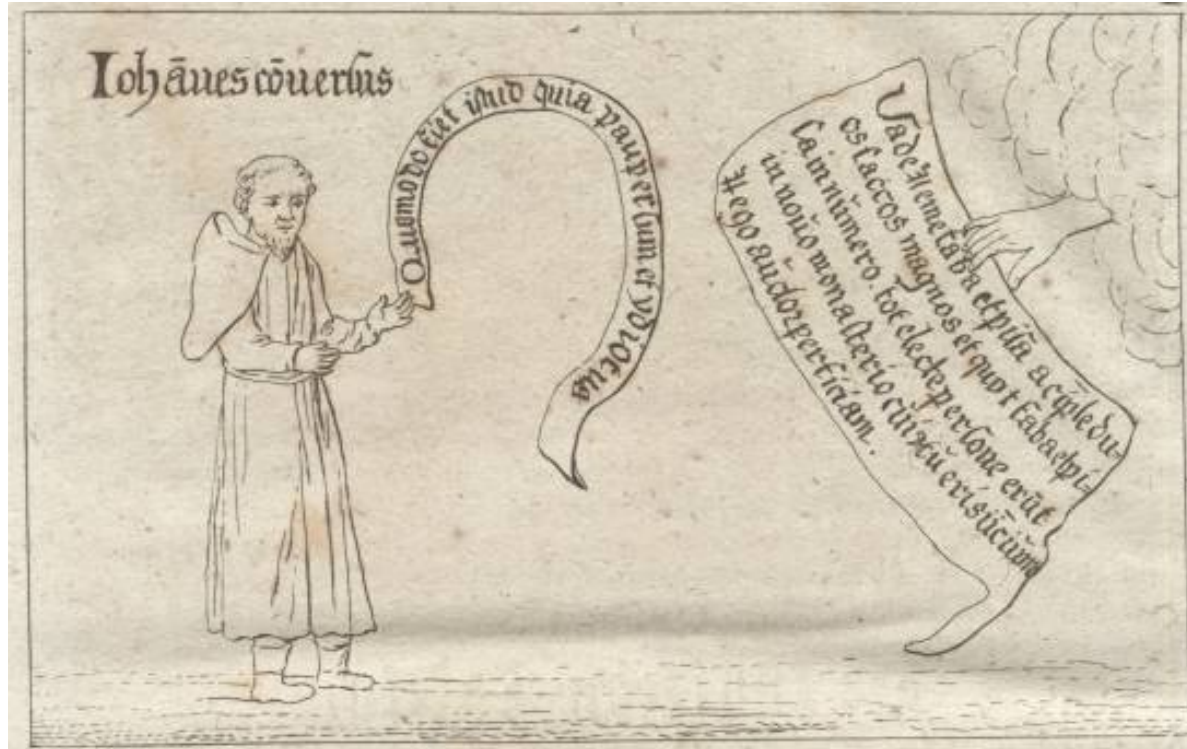 Iohāues cōuersus
Quomodo fiet istud quia pauper sum et ydiotus
Vade Heme faba et pisa ac īple du-
os saccos magnos et quot faba et pi-
sa in nūmero. tot electe persone erūt
in nouo monasterio
Et ego auctor perficiam.